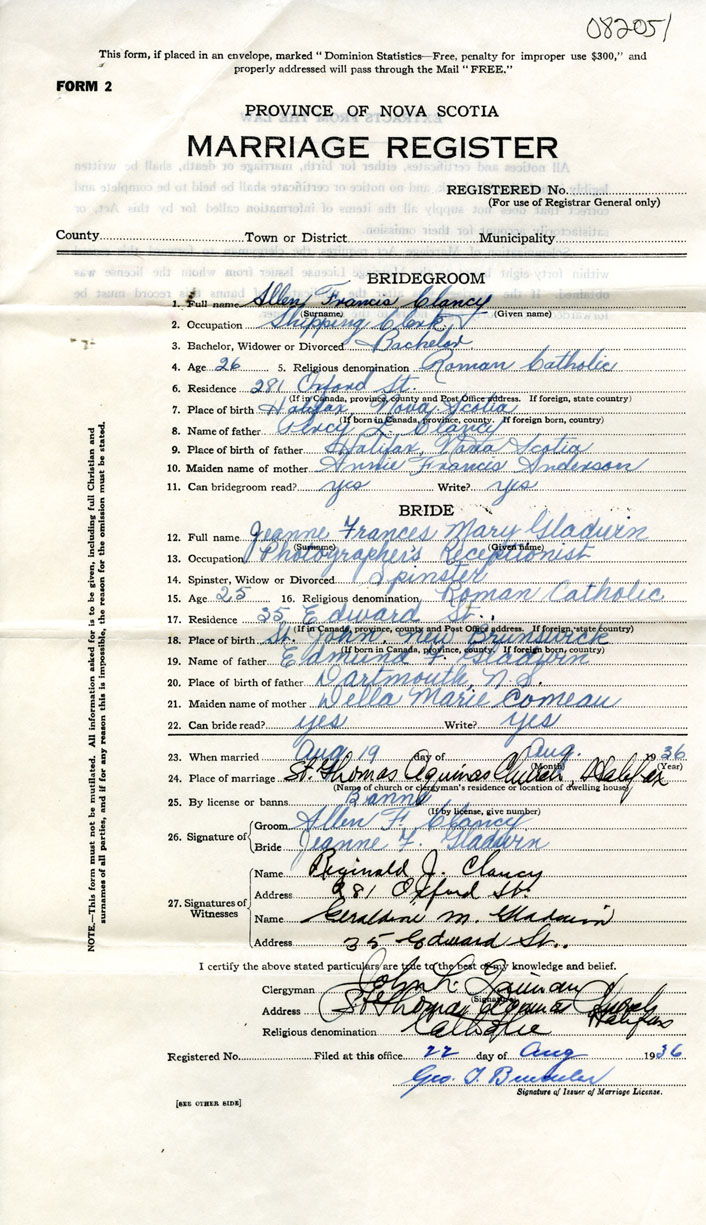 082051
This form, if placed in an envelope, marked "Dominion Statistics—Free, penalty for improper use $300," and
properly addressed will pass through the Mail "FREE."
FORM 2
PROVINCE OF NOVA SCOTIA
MARRIAGE REGISTER
REGISTERED No.
(For use of Registrar General only)
County Town or District Municipality
BRIDEGROOM
1. Full name Allen Francis Clancy
(Surname) (Given name)
2. Occupation Shipping Clerk
3. Bachelor, Widower or Divorced Bachelor
4. Age 26 5. Religious denomination Roman Catholic
6. Residence 281 Oxford St.
(If in Canada, province, county and Post Office address. If foreign, state country)
7. Place of birth Halifax, Nova Scotia
(If born in Canada, province, county. If foreign born, country)
8. Name of father Percy L. Clancy
9. Place of birth of father Halifax, Nova Scotia
10. Maiden name of mother Annie Francis Anderson
11. Can bridegroom read? yes Write? yes
BRIDE
12. Full name Jeanne Frances Mary Gladwin
(Surname) (Given name)
13. Occupation Photographer's Receptionist
14. Spinster, Widow or Divorced Spinster
15. Age 25 16. Religious denomination Roman Catholic
17. Residence 35 Edward St.,
(If in Canada, province, county and Post Office address. If foreign, state country)
18. Place of birth St. John, New Brunswick
(If born in Canada, province, county. If foreign born, country)
19. Name of father Edmund F. Gladwin
20. Place of birth of father Dartmouth, N.S.
21. Maiden name of mother Della Marie Comeau
22. Can bride read? yes Write? yes
23. When married Aug 19 day of Aug. 1936
(Month) (Year)
24. Place of marriage St. Thomas Aquinas Church Halifax
(Name of church or clergyman's residence or location of dwelling house)
25. By license or banns Banns
(If by license, give number)
26. Signature of Groom Allen F. Clancy
Bride Jeanne F. Gladwin
27. Signatures of Witnesses Name Reginald J. Clancy
Address 281 Oxford St.
Name Geraldine M. Gladwin
Address 35 Edward St.
I certify the above stated particulars are true to the best of my knowledge and belief.
Clergyman John L.
(Signature)
Address St Thomas Aquinas Church Halifax
Religious denomination Catholic
Registered No. Filed at this office 22 day of Aug 1936
Geo. T.
Signature of Issuer of Marriage License.
[SEE OTHER SIDE]
NOTE.—This form must not be mutilated. All information asked for is to be given, including full Christian and
surnames of all parties, and if for any reason this is impossible, the reason for the omission must be stated.